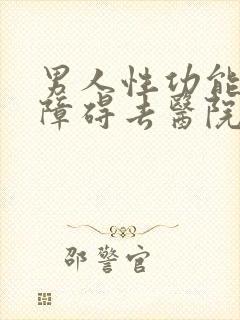 男人性功能
障碍去醫院
邵警官